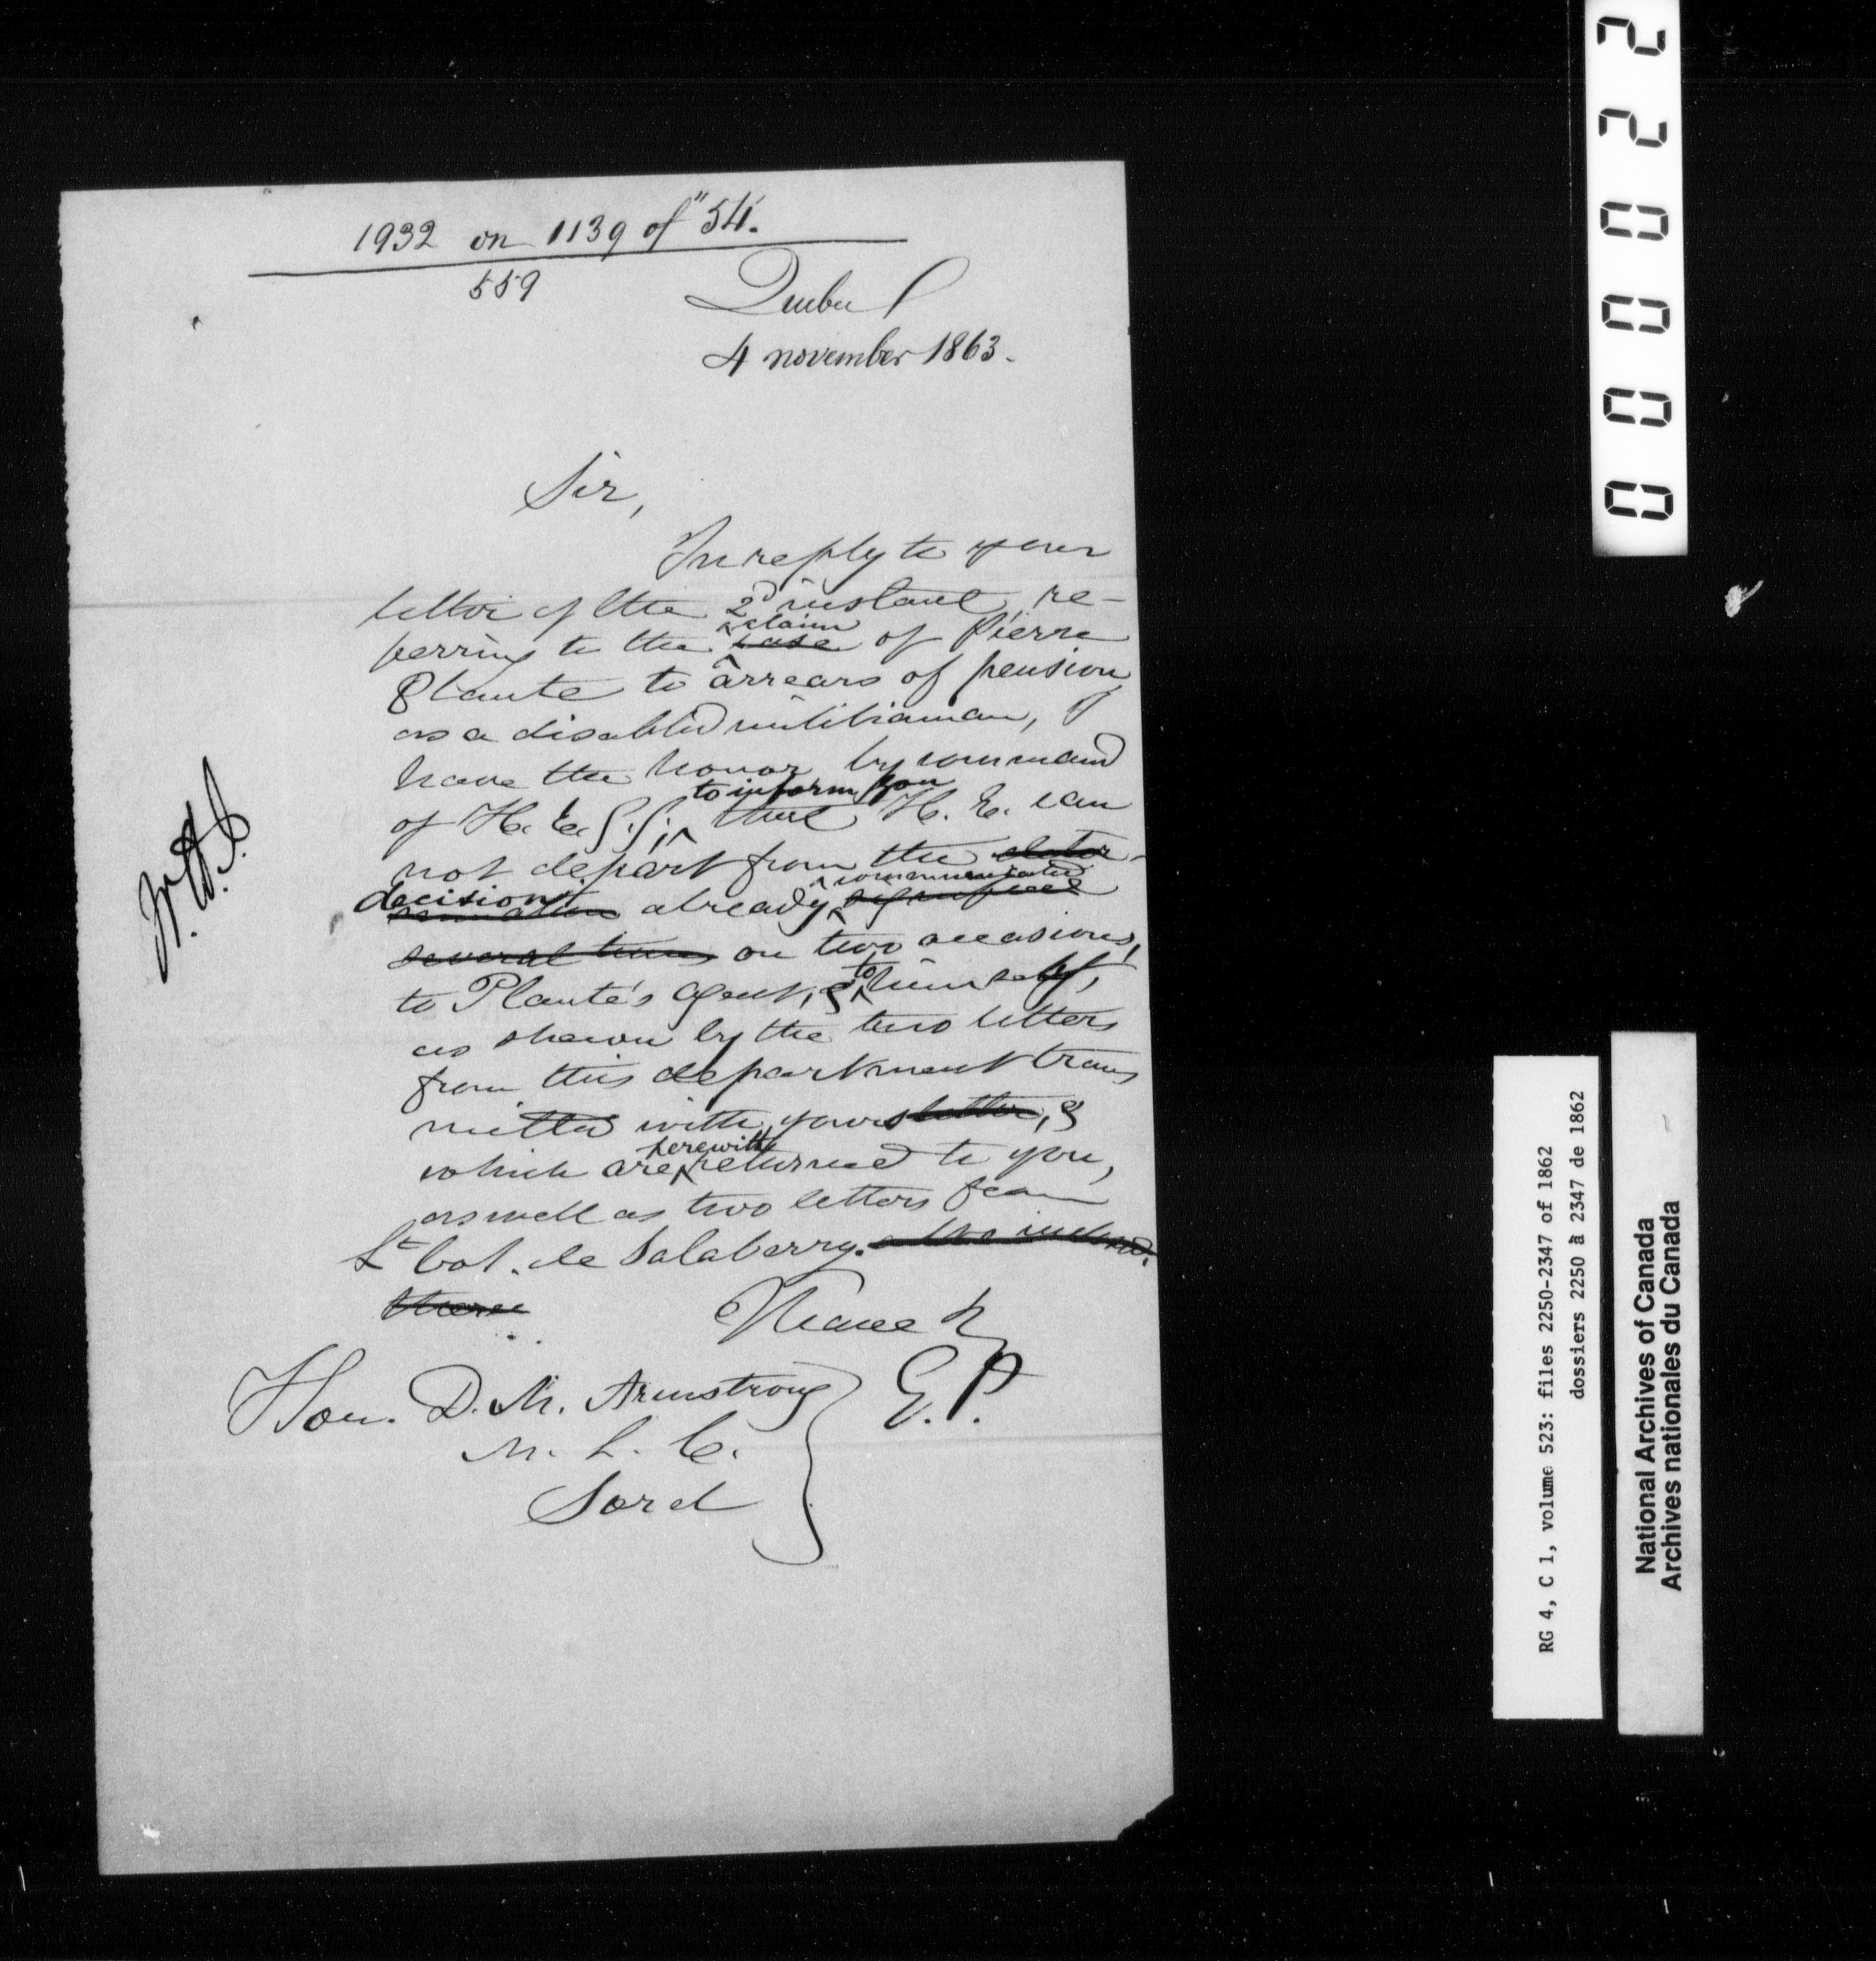 1932 on 1139 of "54.
559
Quebec
4 november 1863.
Sir,
In reply to your
letter of the 2d instant, re-
ferring to the case claim of Pierre
Plante to arrears of pension
as a disabled militiaman, I
have the honor by command
of H. E. G. G. to inform you that H. E. can
not depart from the deter-
mination decision already signified communicated
several times on two occasions,
to Plante's agent, & to himself,
as shewn by the two letters
from this department trans
mitted with yours letter, &
which are herewith returned to you,
as well as two letters from
Lt Col. de Salaberry.
there
I have &
Hon. D. M. Armstrong
M. L. C.
Sorel
E. P.
00022
RG 4, C 1, volume 523: files 2250-2347 of 1862
dossiers 2250 à 2347 de 1862
National Archives of Canada
Archives nationales du Canada